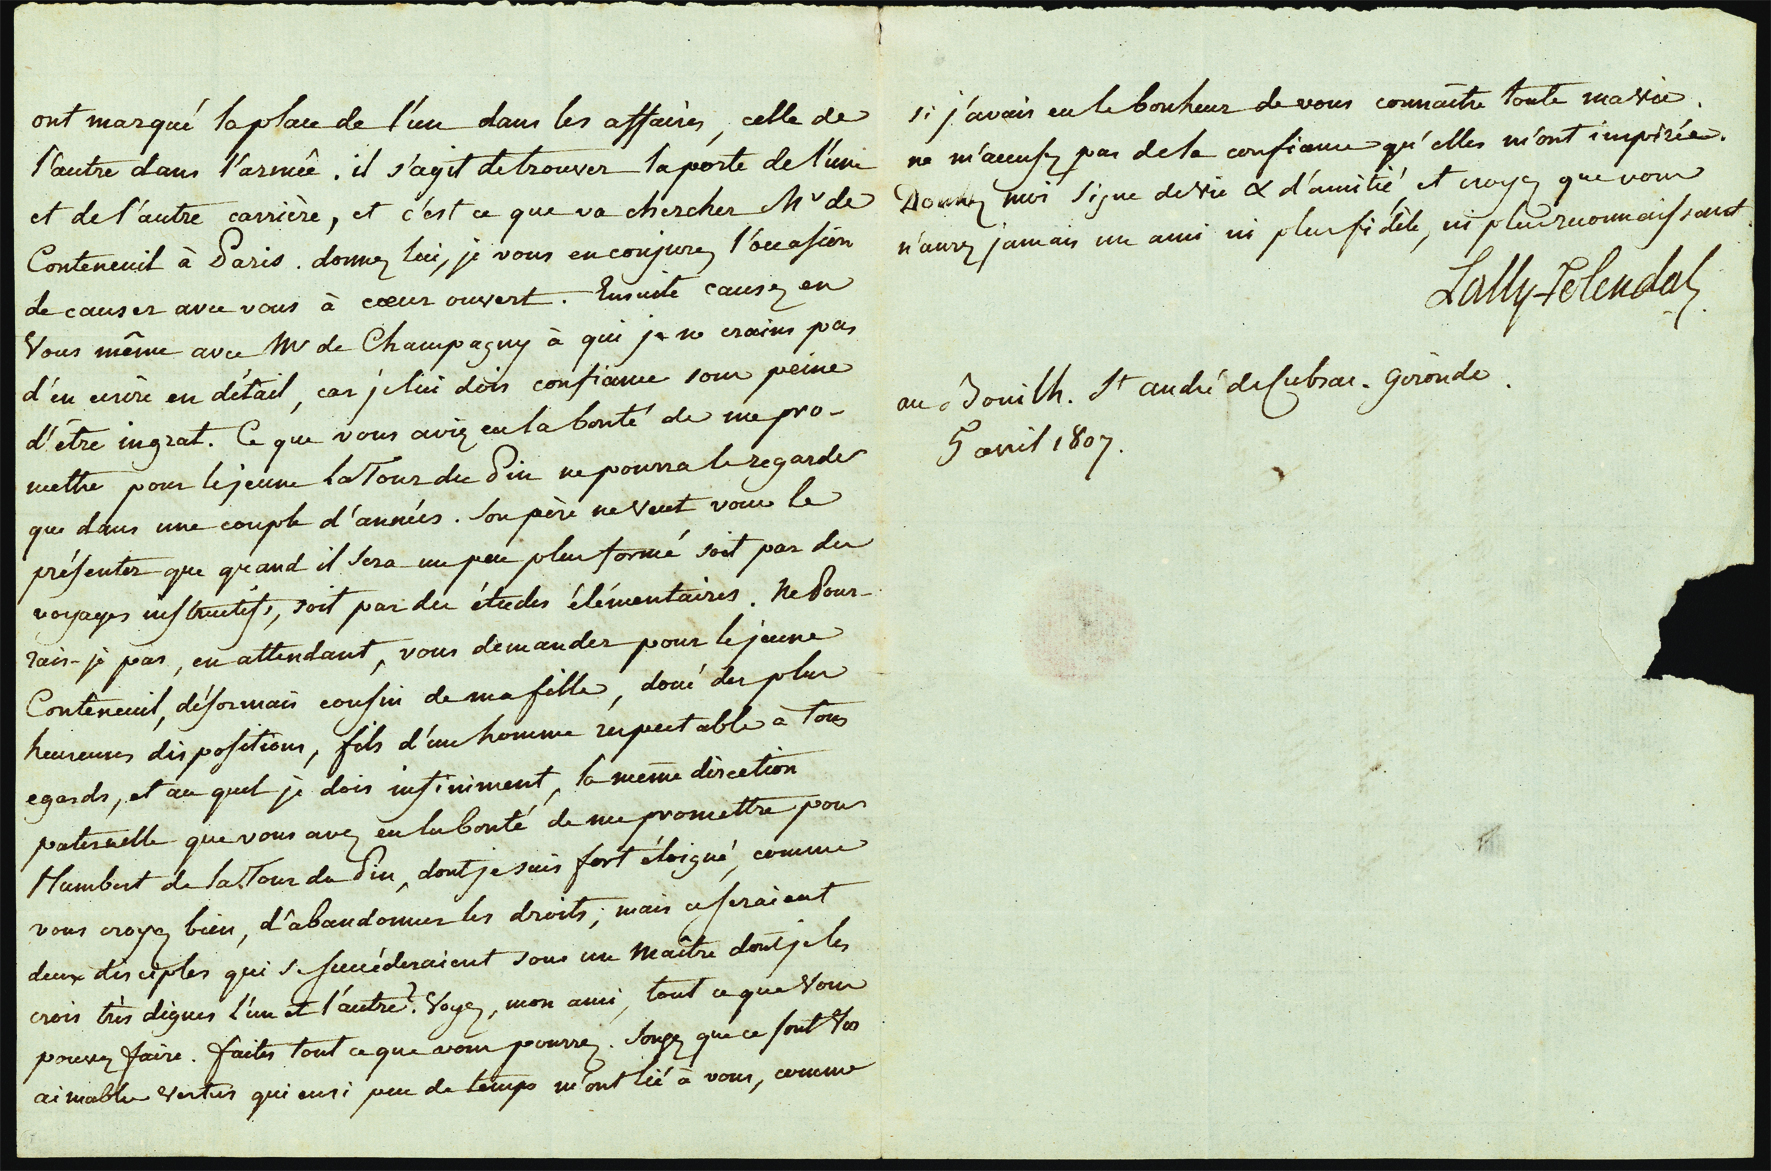 ont marqué la place de l'un dans les affaires, celle de
l'autre dans l'armée. il s'agit de trouver la porte de l'une
et de l'autre carrière, et c'est ce que va chercher Mr de
Conteneuil à Paris. donnez lui, je vous en conjure, l'occasion
de causer avec vous à cœur ouvert. Ensuite causez en
Vous même avec Mr de Champagny à qui je ne crains pas
d'en écrire en détail, car je lui dois confiance sous peine
d'être ingrat. Ce que vous aviez eu la bonté de me pro-
mettre pour le jeune La Tour du Pin ne pourra le regarder
que dans une couple d'années. Son père ne veut vous le
présenter que quand il sera un peu plus formé soit par des
voyages instructifs, soit par des études élémentaires. Ne Pour-
rais-je pas, en attendant, vous demander pour le jeune
Conteneuil, désormais cousin de ma fille, doué des plus
heureuses dispositions, fils d'un homme respectable à tous
egards, et au quel je dois infiniment, la même direction
paternelle que vous avez eu la bonté de me promettre pour
Humbert de La Tour du Pin, dont je suis fort éloigné, comme
vous croyez bien, d'abandonner les droits; mais ce seraient
deux disciples qui se succéderaient sous un Maître dont je les
crois très dignes l'un et l'autre? Voyez, mon ami, tout ce que Vous
pouvez faire. faites tout ce que vous pourrez. Songez que ce sont Vos
aimables Vertus qui en si peu de temps m'ont lié à vous, comme
si j'avais eu le bonheur de vous connaître toute ma vie.
ne m'accusez pas de la confiance qu'elles m'ont inspirée.
Donnez moi signe de vie & d'amitié, et croyez que vous
n'aurez jamais un ami ni plus fidèle, ni plus reconnaissant.
Lally-Tolendal
au Bouilh. St andré de Cubsac. Gironde.
5 avril 1807.